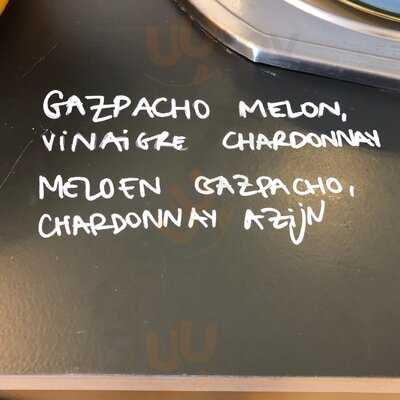 GAZPACHO MELON,
VINAIGRE CHARDONNAY
MELOEN GAZPACHO,
CHARDONNAY AZIJN